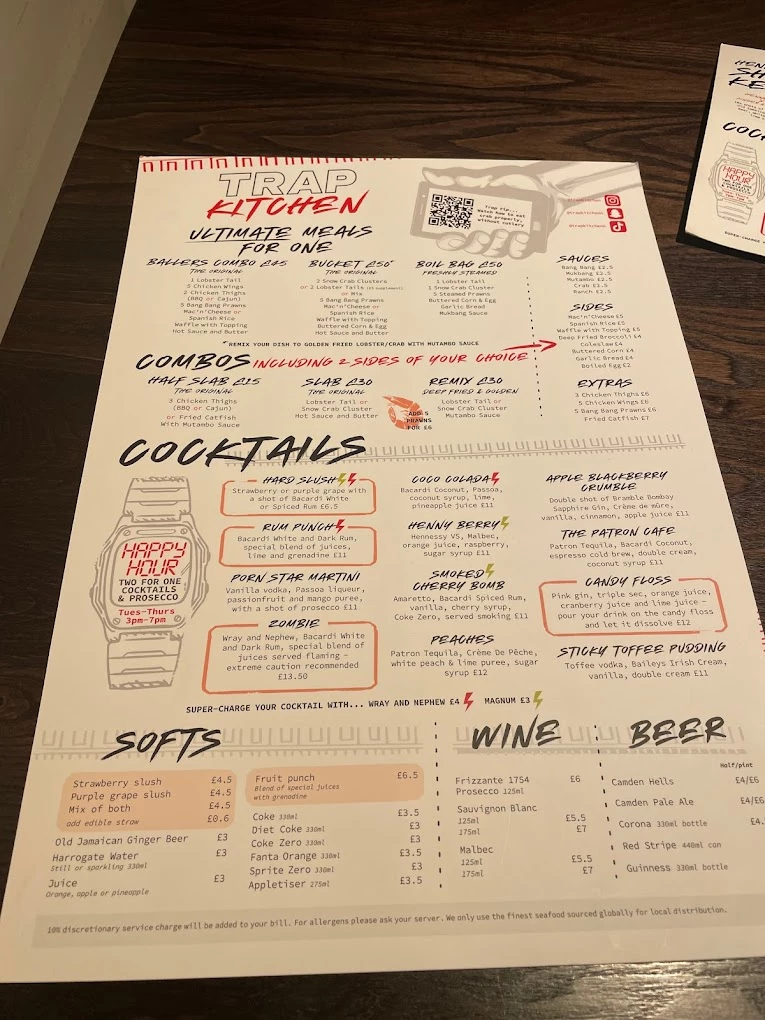 TRAP
KITCHEN
ULTIMATE MEALS
FOR ONE
BALLERS COMBO £45
THE ORIGINAL
1 Lobster Tail
5 Chicken Wings
2 Chicken Thighs
(BBQ or Cajun)
5 Bang Bang Prawns
Mac'n'Cheese or
Spanish Rice
Waffle with Topping
Hot Sauce and Butter
BUCKET £50*
THE ORIGINAL
2 Snow Crab Clusters
or 2 Lobster Tails
or Mix
5 Bang Bang Prawns
Mac'n'Cheese or
Spanish Rice
Waffle with Topping
Buttered Corn & Egg
Hot Sauce and Butter
BOIL BAG £50
FRESHLY STEAMED
1 Lobster Tail
1 Snow Crab Cluster
5 Steamed Prawns
Buttered Corn & Egg
Garlic Bread
Mukbang Sauce
Trap tip...
Watch how to eat
crab properly,
without cutlery
@trapkitchens
@trapkitchens
@trapkitchens
SAUCES
Bang Bang £2.5
Mukbang £2.5
Mutambo £2.5
Crab £2.5
Ranch £2.5
SIDES
Mac'n'Cheese £5
Spanish Rice £5
Waffle with Topping £5
Deep Fried Broccoli £4
Coleslaw £4
Buttered Corn £4
Garlic Bread £4
Boiled Egg £2
EXTRAS
3 Chicken Thighs £6
5 Chicken Wings £6
5 Bang Bang Prawns £6
Fried Catfish £7
*REMIX YOUR DISH TO GOLDEN FRIED LOBSTER/CRAB WITH MUTAMBO SAUCE
COMBOS INCLUDING 2 SIDES OF YOUR CHOICE
HALF SLAB £25
THE ORIGINAL
3 Chicken Thighs
(BBQ or Cajun)
or Fried Catfish
With Mutambo Sauce
SLAB £30
THE ORIGINAL
Lobster Tail or
Snow Crab Cluster
Hot Sauce and Butter
ADD 5
PRAWNS
FOR £6
REMIX £30
DEEP FRIED & GOLDEN
Lobster Tail or
Snow Crab Cluster
Mutambo Sauce
COCKTAILS
HAPPY
HOUR
TWO FOR ONE
COCKTAILS
& PROSECCO
Tues-Thurs
3pm-7pm
HARD SLUSH
Strawberry or purple grape with
a shot of Bacardi White
or Spiced Rum £6.5
RUM PUNCH
Bacardi White and Dark Rum,
special blend of juices,
lime and grenadine £11
PORN STAR MARTINI
Vanilla vodka, Passoa liqueur,
passionfruit and mango puree,
with a shot of prosecco £11
ZOMBIE
Wray and Nephew, Bacardi White
and Dark Rum, special blend of
juices served flaming –
extreme caution recommended
£13.50
COCO COLADA
Bacardi Coconut, Passoa,
coconut syrup, lime,
pineapple juice £11
HENNY BERRY
Hennessy VS, Malbec,
orange juice, raspberry,
sugar syrup £11
SMOKED
CHERRY BOMB
Amaretto, Bacardi Spiced Rum,
vanilla, cherry syrup,
Coke Zero, served smoking £11
PEACHES
Patron Tequila, Crème De Pêche,
white peach & lime puree, sugar
syrup £12
APPLE BLACKBERRY
CRUMBLE
Double shot of Bramble Bombay
Sapphire Gin, Crème de mûre,
vanilla, cinnamon, apple juice £11
THE PATRON CAFE
Patron Tequila, Bacardi Coconut,
espresso cold brew, double cream,
coconut syrup £11
CANDY FLOSS
Pink gin, triple sec, orange juice,
cranberry juice and lime juice –
pour your drink on the candy floss
and let it dissolve £12
STICKY TOFFEE PUDDING
Toffee vodka, Baileys Irish Cream,
vanilla, double cream £11
SUPER-CHARGE YOUR COCKTAIL WITH... WRAY AND NEPHEW £4 MAGNUM £3
SOFTS
Strawberry slush £4.5
Purple grape slush £4.5
Mix of both £4.5
add edible straw £0.6
Old Jamaican Ginger Beer £3
Harrogate Water £3
Still or sparkling 330ml
Juice £3
Orange, apple or pineapple
Fruit punch £6.5
Blend of special juices
with grenadine
Coke 330ml £3.5
Diet Coke 330ml £3
Coke Zero 330ml £3
Fanta Orange 330ml £3.5
Sprite Zero 330ml £3
Appletiser 275ml £3.5
WINE
Frizzante 1754 £6
Prosecco 125ml
Sauvignon Blanc
125ml £5.5
175ml £7
Malbec
125ml £5.5
175ml £7
BEER
Half/pint
Camden Hells £4/£6
Camden Pale Ale £4/£6
Corona 330ml bottle £4.
Red Stripe 440ml can
Guinness 330ml bottle
10% discretionary service charge will be added to your bill. For allergens please ask your server. We only use the finest seafood sourced globally for local distribution.
HAPPY
HOUR
SUPER-CHARGE